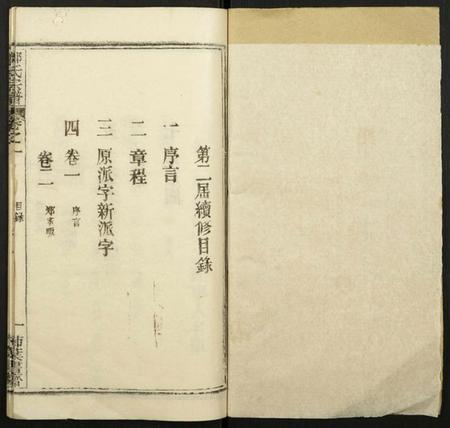 第二屆續修目錄
一 序言
二 章程
三 原派字新派字
四 卷一 序言
卷二
氏宗譜 卷之一
目錄
一